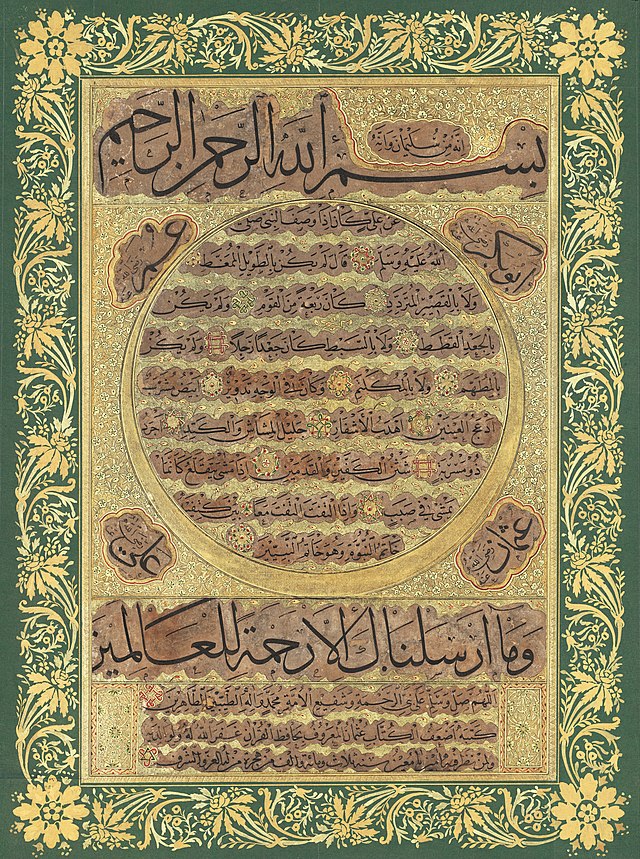 إنه من سليمان وإنه
بسم الله الرحمن الرحيم
ابوبكر
عمر
عن علي كان إذا وصف النبي صلى
الله عليه وسلم قال لم يكن بالطويل الممغط
ولا بالقصير المتردد كان ربعة من القوم ولم يكن
بالجعد القطط ولا بالسبط كان جعدا رجلا ولم يكن
بالمطهم ولا بالمكلثم وكان في الوجه تدوير ابيض مشرب
ادعج العينين اهدب الاشفار جليل المشاش والكتد اجرد
ذو مسربة شثن الكفين والقدمين اذا مشى يتقلع كانما
يمشي في صبب واذا التفت التفت معا بين كتفيه
خاتم النبوة وهو خاتم النبيين
عثمان
علي
وما ارسلناك الا رحمة للعالمين
اللهم صل وسلم على نبي الرحمة وشفيع الامة محمد وآله الطيبين الطاهرين
كتبه اضعف الكتاب عثمان المعروف بحافظ القرآن غفر الله له ولوالديه